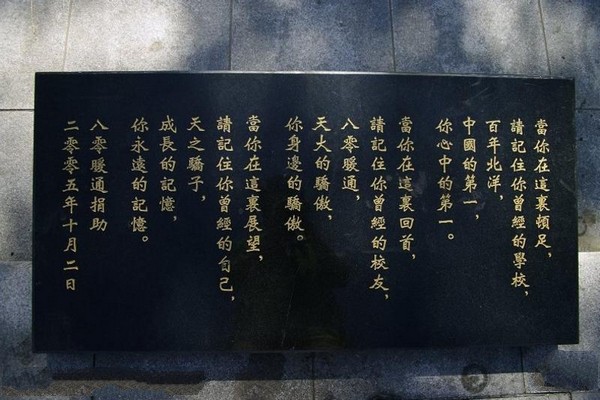 當你在這裏頓足，
請記住你曾經的學校，
百年北洋，
中國的第一，
你心中的第一。
當你在這裏回首，
請記住你曾經的校友，
八零暖通，
天大的驕傲，
你身邊的驕傲。
當你在這裏展望，
請記住你曾經的自己，
天之驕子，
成長的記憶，
你永遠的記憶。
八零暖通捐助
二零零五年十月二日